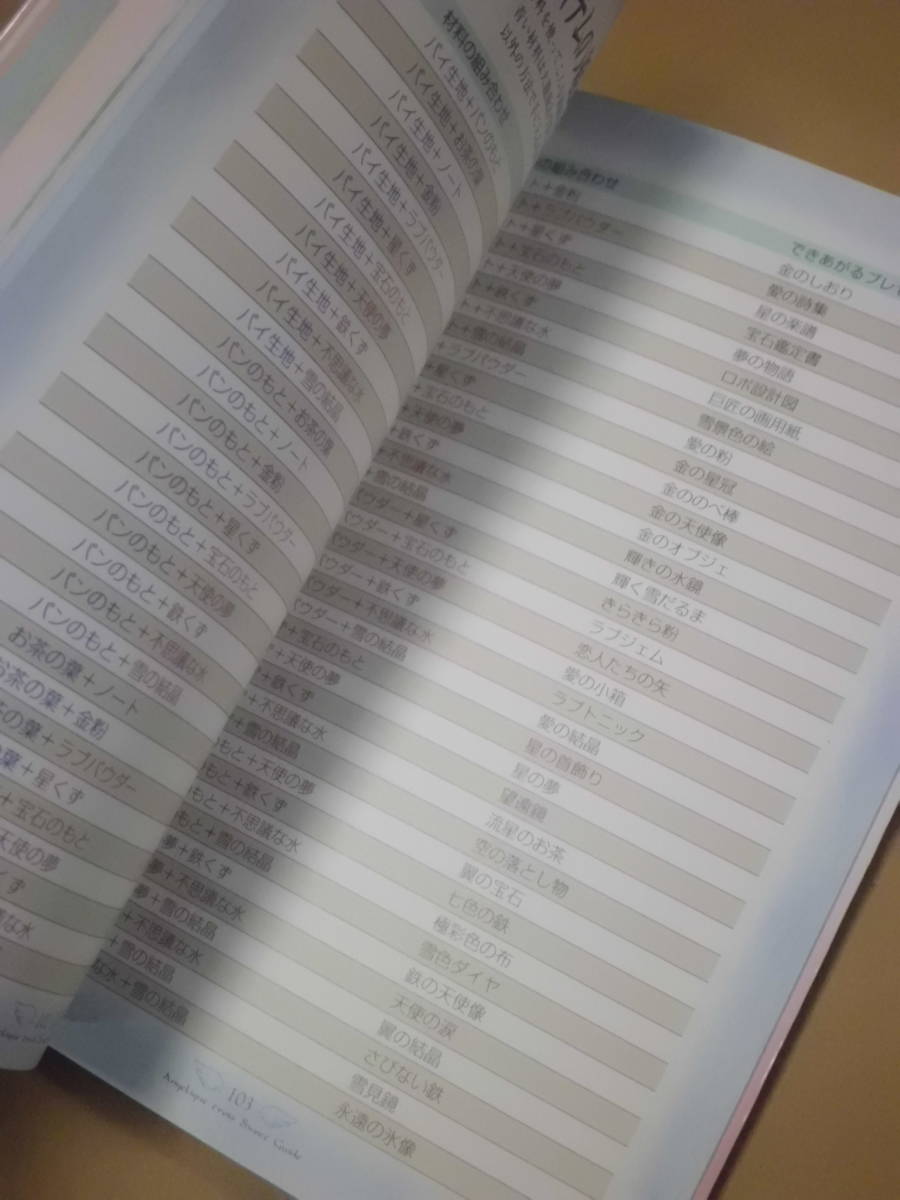 材料の組み合わせ
パイ生地+パンのもと
パイ生地+お茶の葉
パイ生地+ノート
パイ生地+金粉
パイ生地+ラブパウダー
パイ生地+星くず
パイ生地+宝石のもと
パイ生地+天使の夢
パイ生地+鉄くず
パイ生地+不思議な水
パイ生地+雪の結晶
パンのもと+お茶の葉
パンのもと+ノート
パンのもと+金粉
パンのもと+ラブパウダー
パンのもと+星くず
パンのもと+宝石のもと
パンのもと+天使の夢
パンのもと+鉄くず
パンのもと+不思議な水
パンのもと+雪の結晶
お茶の葉+ノート
お茶の葉+金粉
茶の葉+ラブパウダー
葉+星くず
+宝石のもと
天使の夢
くず
な水
の組み合わせ できあがるプレ
ト+金粉 金のしおり
ト+ラブパウダー 愛の詩集
+星くず 星の楽譜
+宝石のもと 宝石鑑定書
+天使の夢 夢の物語
+鉄くず ロボ設計図
+不思議な水 巨匠の画用紙
+雪の結晶 雪景色の絵
ラブパウダー 愛の粉
+星くず 金の星冠
宝石のもと 金ののべ棒
+天使の夢 金の天使像
+鉄くず 金のオブジェ
+不思議な水 輝きの水鏡
雪の結晶 輝く雪だるま
パウダー+星くず きらきら粉
パウダー+宝石のもと ラブジェム
パウダー+天使の夢 恋人たちの矢
ウダー+鉄くず 愛の小箱
ウダー+不思議な水 ラブトニック
ウダー+雪の結晶 愛の結晶
+宝石のもと 星の首飾り
+天使の夢 星の夢
+鉄くず 望遠鏡
+不思議な水 流星のお茶
+雪の結晶 空の落とし物
もと+天使の夢 翼の宝石
もと+鉄くず 七色の鉄
もと+不思議な水 極彩色の布
もと+雪の結晶 雪色ダイヤ
夢+鉄くず 鉄の天使像
夢+不思議な水 天使の涙
夢+雪の結晶 翼の結晶
+不思議な水 さびない鉄
+雪の結晶 雪見鏡
な水+雪の結晶 永遠の氷像
103
Angelique cross Sweet Guide